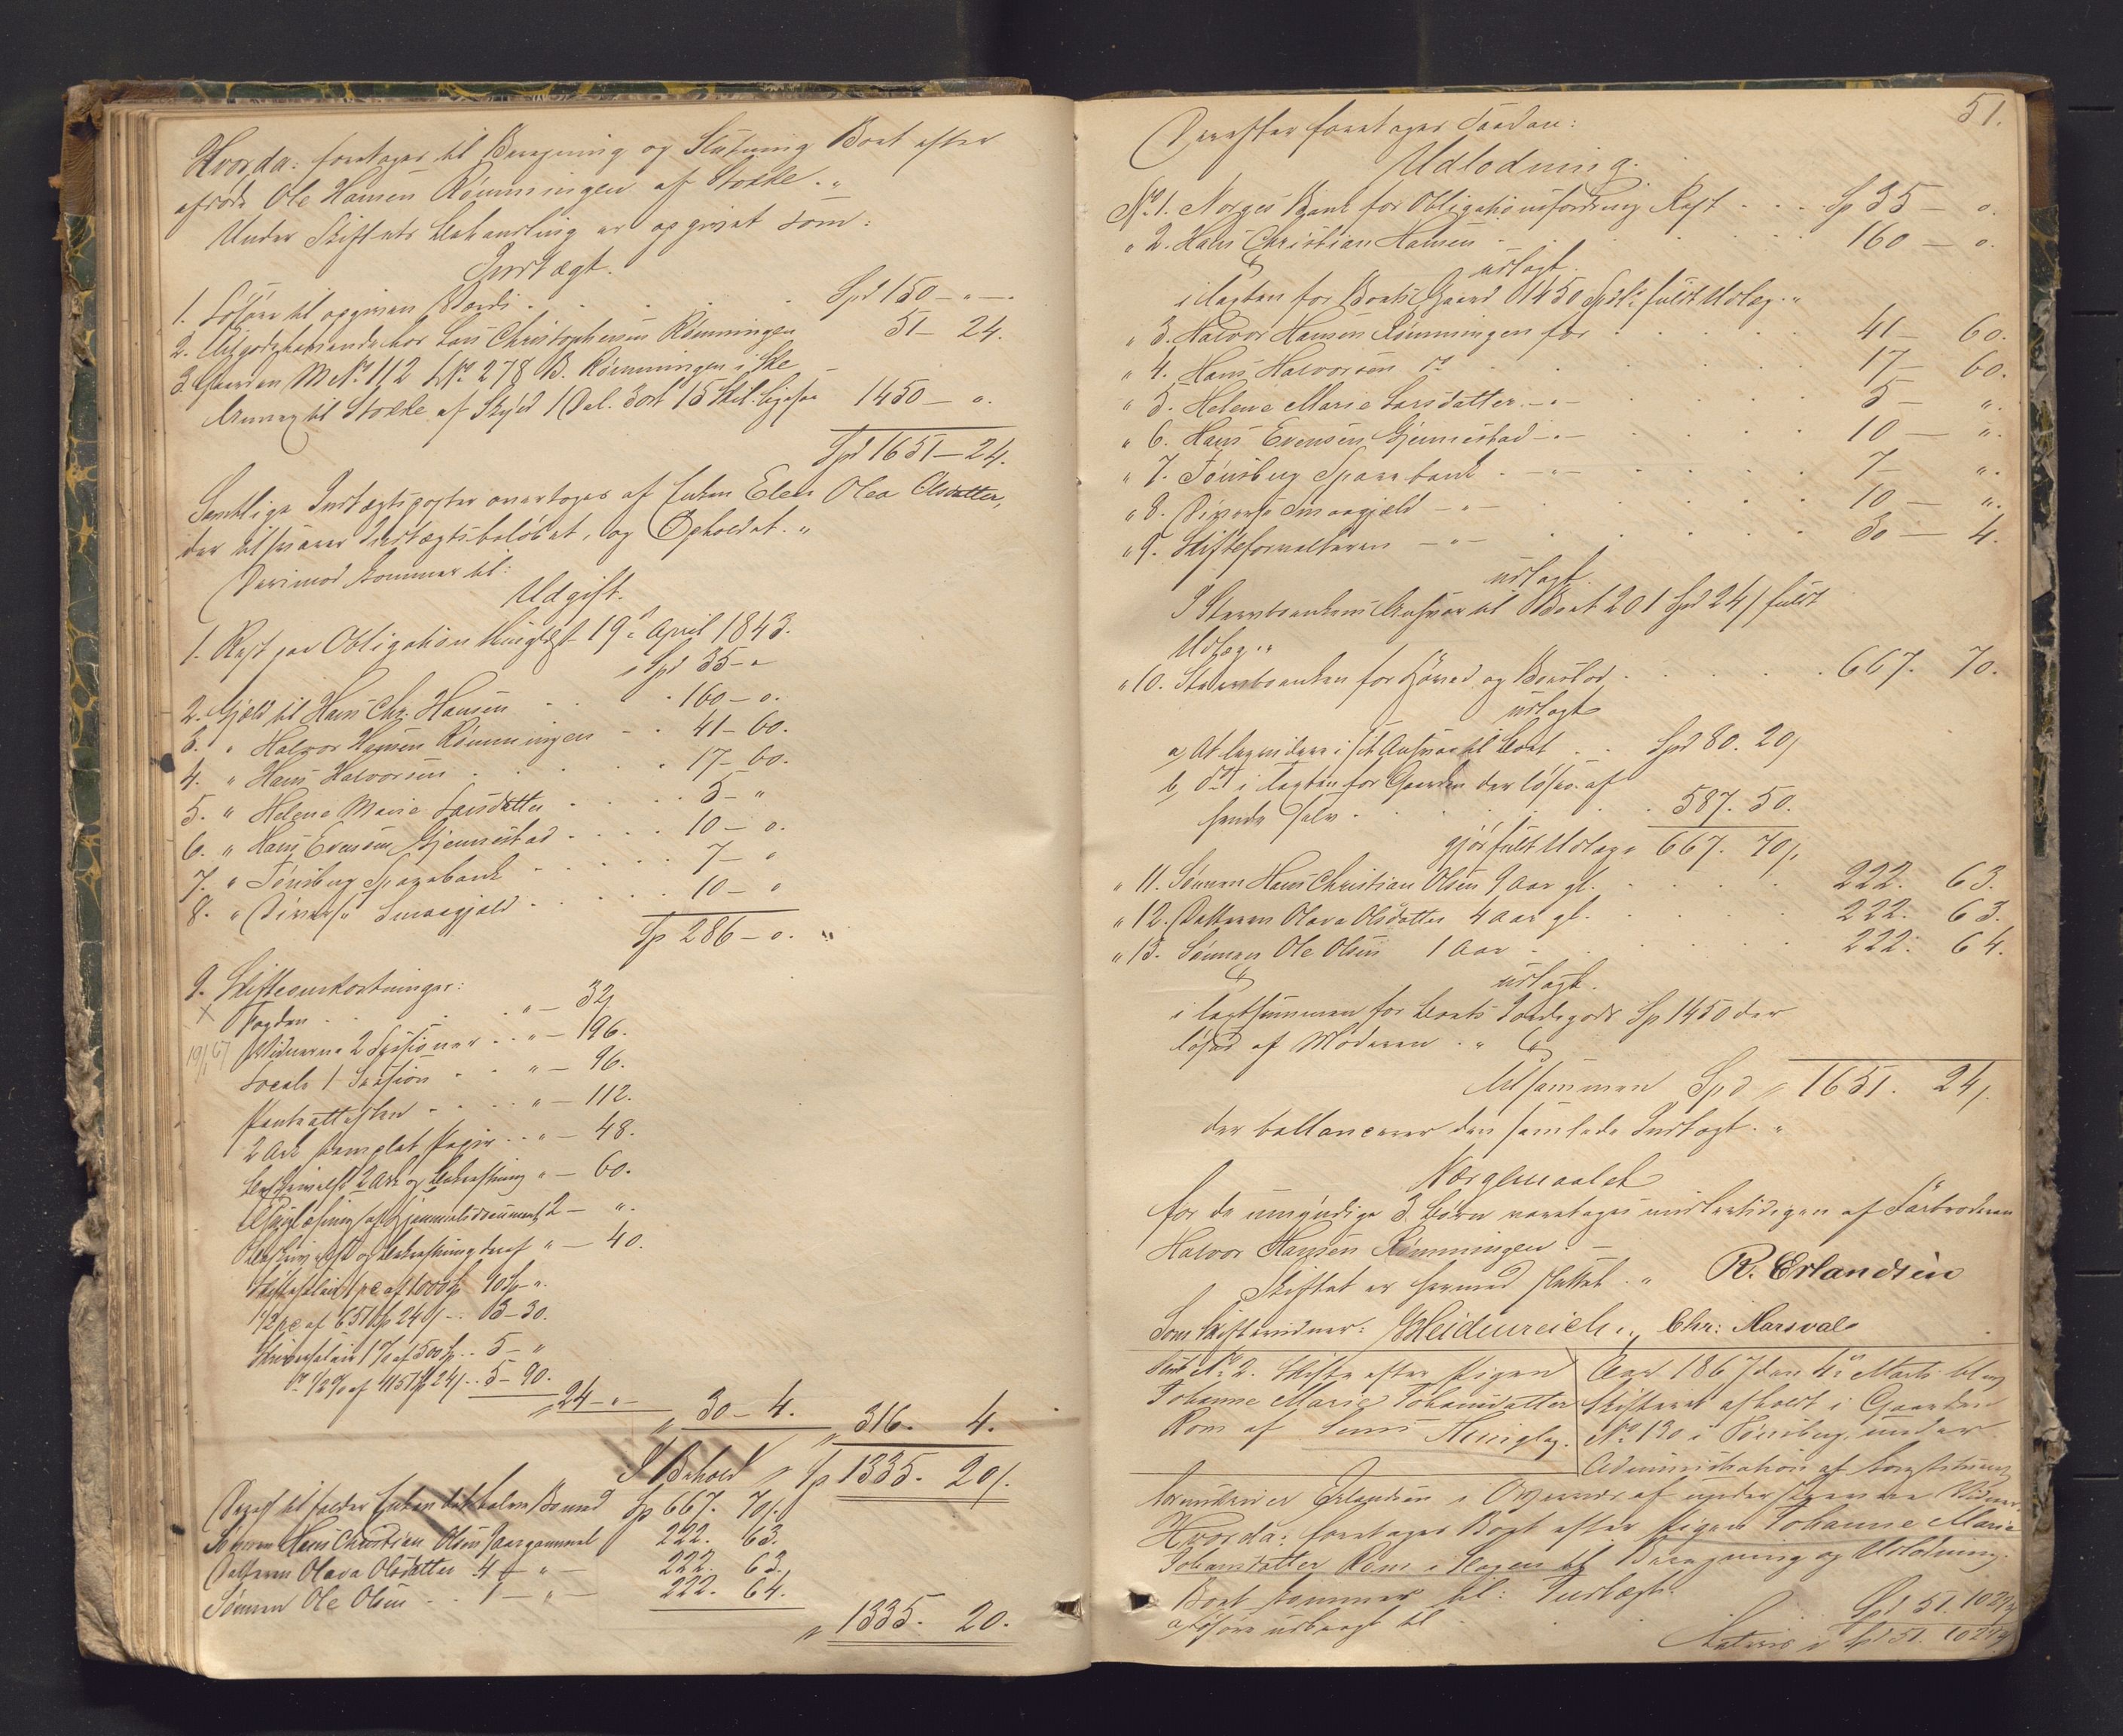 Hvorda: foretages til Beregning og Slutning Boet efter
afdøde Ole Hansen Rømmingen af Stokke. "
Under Skiftets Behandling er opgivet som:
Indtægt.
1. Løsøre til opgiven Værdi . . . Spd 150 - " -
2. Tilgodehavende hos Lars Christophersen Rømmingen 51 - 24.
3. Gaarden M No 112 L No 278 B. Rømmingen i
Annex til Stokke af Skyld 1 Dal. 3 ort 15 Skil. 1450 - o.
Spd 1651 - 24.
Samtlige Indtægtsposter overtages af Enken Elen Olea Olsdatter,
der tilsvarer Indtægtsbeløbet, og Opholdet. "
Derimod kommer til:
Udgift.
1. Rest paa Obligation thinglæst 19de April 1843.
Spd 35 - "
2. Gjæld til Hans Chr. Hansen . . 160 - o.
3. " Halvor Hansen Rømmingen - . 41 - 60.
4. " Hans Halvorsen . . . 17 - 60.
5. " Helene Marie Larsdatter . . . 5 - "
6. " Hans Evensen Gjennestad . . . 10 - o.
7. " Tønsberg Sparebank . . . 7 - "
8. " Diverse Smaagjæld . . . 10 - "
Sp 286 - o. "
9. Skifteomkostninger:
X Fogden . . . " - 32
19/1 67 Vidnerne 2 Sessioner . . " - 196.
Locale 1 Session . . " - 96.
Panteattesten . . . " - 112.
2 Ark stemplet Papir . . " - 48.
Beskrivelse 2 Ark og Bekræftning " - 60.
af Hjemmelsdocument 2 - ".
Beskrivelse og Bekræftning deraf " - 40.
Skiftesalair 1 pc af 1000 Sp 10 Sp - ".
1/2 pc af 651 Sp 24 s - . . 3 - 30.
Skriversalair 1 % af 500 Sp . . 5 - "
Do 1/2 % af 1151 Sp 24 s . . 5 - 90.
" 24 - " -
" 30 - 4. " 316. 4.
I Behold " Sp 1335. 20 s.
Deraf tilfalder Enken det halve Bo med Sp 667. 70 s.
Sønnen Hans Christian Olsen 9 aar gammel 222. 63.
Datteren Olava Olsdatter 4 - " - 222. 63.
Sønnen Ole Olsen . . 1 - " - 222. 64.
" 1335. 20.
51.
Derefter foretages saadan:
Udlodning.
No 1. Norges Bank for Obligationsfordring Rest . . . Sp 35 - o.
" 2. Hans Christian Hansen . . . 160 - o.
udlagt.
i Taxten for Boets Gaard 1450 Spdlr fuldt Udlæg. "
" 3. Halvor Hansen Rømmingen for . . . 41 - 60.
" 4. Hans Halvorsen do . . . 17 - 60.
" 5. Helene Marie Larsdatter - " - . . . 5 - ".
" 6. Hans Evensen Gjennestad - " - . . . 10 - ".
" 7. Tønsberg Sparebank . - " - . . . 7 - ".
" 8. Diverse Smaagjæld - " - . . . 10 - ".
" 9. Skifteforvalteren - " - . . . 30 - 4.
udlagt.
I Stervboenkens Ansvar til Boet 201 Spd 24 s fuldt
Udlæg. "
" 10. Stervboenken for Hoved og Boeslod . . . 667. 70.
udlagt
a, i sit Ansvar til Boet . . Spd 80. 20 s
b, do i Taxten for Gaarden der løses af
hende selv . . . 587. 50.
gjør fuldt Udlæg " 667. 70 s.
" 11. Sønnen Hans Christian Olsen 9 Aar gl. . . . 222. 63.
" 12. Datteren Olava Olsdatter 4 Aar gl. . . . 222. 63.
" 13. Sønnen Ole Olsen 1 Aar . . . 222. 64.
udlagt.
i Taxtsummen for Boets Jordegods Sp 1450 der
løses af Moderen. "
Tilsammen Spd " 1651. 24 s.
der ballancerer den samlede Indtægt. "
Værgemaalet
for de umyndige 3 Børn varetages midlertidigen af Farbroderen
Halvor Hansen Rømmingen. -
Skiftet er hermed sluttet. " R. Erlandsen
Som Skiftevidner: Heidenreich. " Chr: Aarsvald
No 2. Skifte efter Pigen
Johanne Marie Johansdatter
Rom af Sems Thinglag.
Aar 1867 den 4de Marts blev
Skifteret afholdt i Gaarden
No 130 i Tønsberg under
Administration af
Erlandsen i Overvær af undertegnede Vidner.
Hvorda: foretages Boet efter Pigen Johanne Marie
Johansdatter Rom i Slagen til Beregning og Udlodning.
Boet kommer til: Indtægt:
a, Løsøre udbragt til . . Spd 51. 102
Spd 51. 102